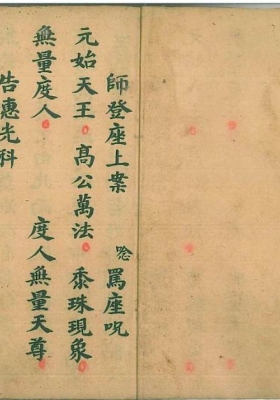 師登座上案 唸罵座呪
元始天王 髙公萬法 黍珠現象
無量度人 度人無量天尊
告惠光科